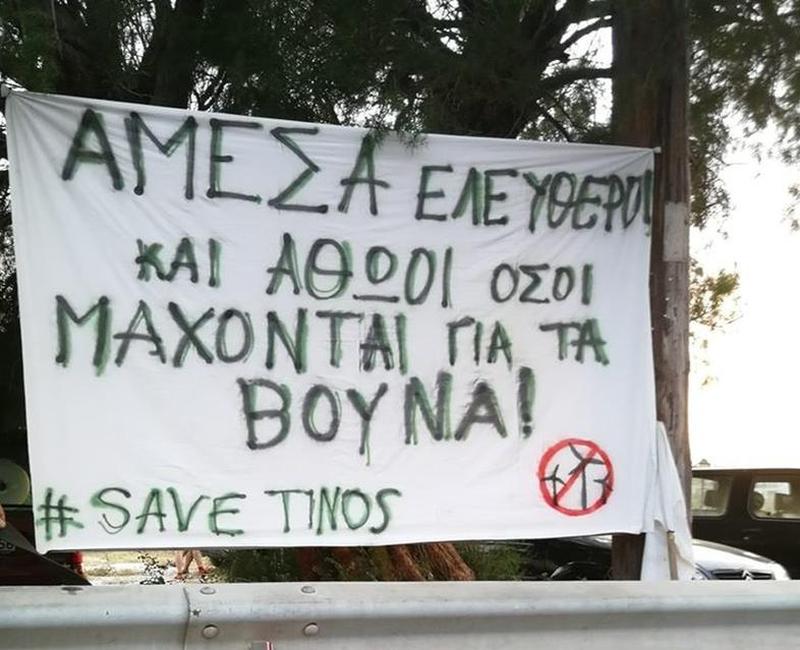 ΑΜΕΣΑ ΕΛΕΥΘΕΡΟΙ
ΚΑΙ ΑΘΩΟΙ ΟΣΟΙ
ΜΑΧΟΝΤΑΙ ΓΙΑ ΤΑ
ΒΟΥΝΑ!
#SAVE TINOS